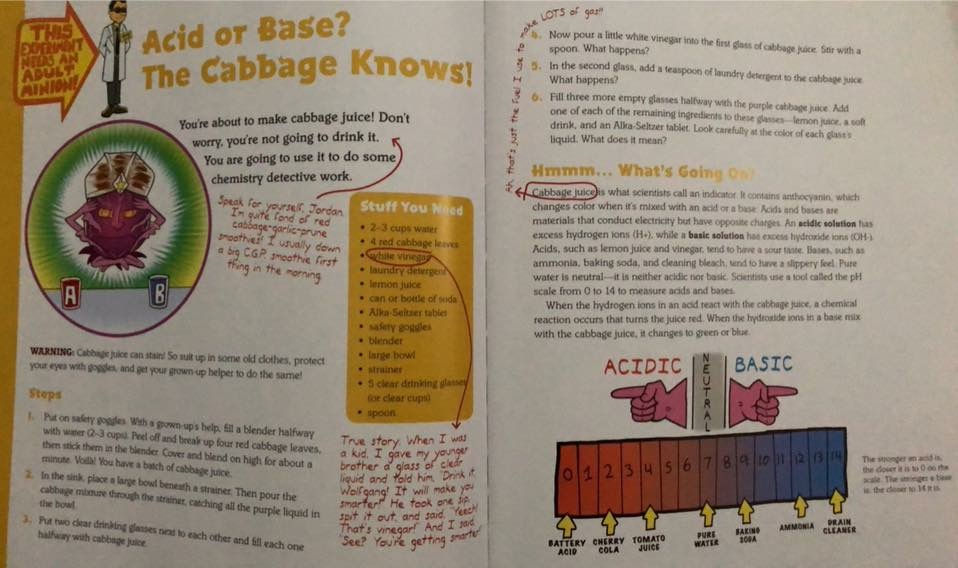 THIS
EXPERIMENT
NEEDS AN
ADULT
MINION!
Acid or Base?
The Cabbage Knows!
You're about to make cabbage juice! Don't
worry, you're not going to drink it.
You are going to use it to do some
chemistry detective work.
Speak for yourself, Jordan.
I'm quite fond of red
cabbage-garlic-prune
smoothies! I usually down
a big C.G.P. smoothie first
thing in the morning.
A
B
Stuff You Need
• 2–3 cups water
• 4 red cabbage leaves
• white vinegar
• laundry detergent
• lemon juice
• can or bottle of soda
• Alka-Seltzer tablet
• safety goggles
• blender
• large bowl
• strainer
• 5 clear drinking glasses
(or clear cups)
• spoon
WARNING: Cabbage juice can stain! So suit up in some old clothes, protect
your eyes with goggles, and get your grown-up helper to do the same!
Steps
1. Put on safety goggles. With a grown-up's help, fill a blender halfway
with water (2–3 cups). Peel off and break up four red cabbage leaves,
then stick them in the blender. Cover and blend on high for about a
minute. Voilà! You have a batch of cabbage juice.
2. In the sink, place a large bowl beneath a strainer. Then pour the
cabbage mixture through the strainer, catching all the purple liquid in
the bowl.
3. Put two clear drinking glasses next to each other and fill each one
halfway with cabbage juice.
True story. When I was
a kid, I gave my younger
brother a glass of clear
liquid and told him, "Drink it,
Wolfgang! It will make you
smarter!" He took one sip,
spit it out, and said, "Yeech!
That's vinegar!" And I said,
"See? You're getting smarter!"
Ah, that's just the fuel I use to make LOTS of gas!!
4. Now pour a little white vinegar into the first glass of cabbage juice. Stir with a
spoon. What happens?
5. In the second glass, add a teaspoon of laundry detergent to the cabbage juice.
What happens?
6. Fill three more empty glasses halfway with the purple cabbage juice. Add
one of each of the remaining ingredients to these glasses—lemon juice, a soft
drink, and an Alka-Seltzer tablet. Look carefully at the color of each glass's
liquid. What does it mean?
Hmmm... What's Going On?
Cabbage juice is what scientists call an indicator. It contains anthocyanin, which
changes color when it's mixed with an acid or a base. Acids and bases are
materials that conduct electricity but have opposite charges. An acidic solution has
excess hydrogen ions (H+), while a basic solution has excess hydroxide ions (OH-).
Acids, such as lemon juice and vinegar, tend to have a sour taste. Bases, such as
ammonia, baking soda, and cleaning bleach, tend to have a slippery feel. Pure
water is neutral—it is neither acidic nor basic. Scientists use a tool called the pH
scale from 0 to 14 to measure acids and bases.
When the hydrogen ions in an acid react with the cabbage juice, a chemical
reaction occurs that turns the juice red. When the hydroxide ions in a base mix
with the cabbage juice, it changes to green or blue.
ACIDIC
NEUTRAL
BASIC
0 1 2 3 4 5 6 7 8 9 10 11 12 13 14
BATTERY
ACID
CHERRY
COLA
TOMATO
JUICE
PURE
WATER
BAKING
SODA
AMMONIA
DRAIN
CLEANER
The stronger an acid is,
the closer it is to 0 on the
scale. The stronger a base
is, the closer to 14 it is.